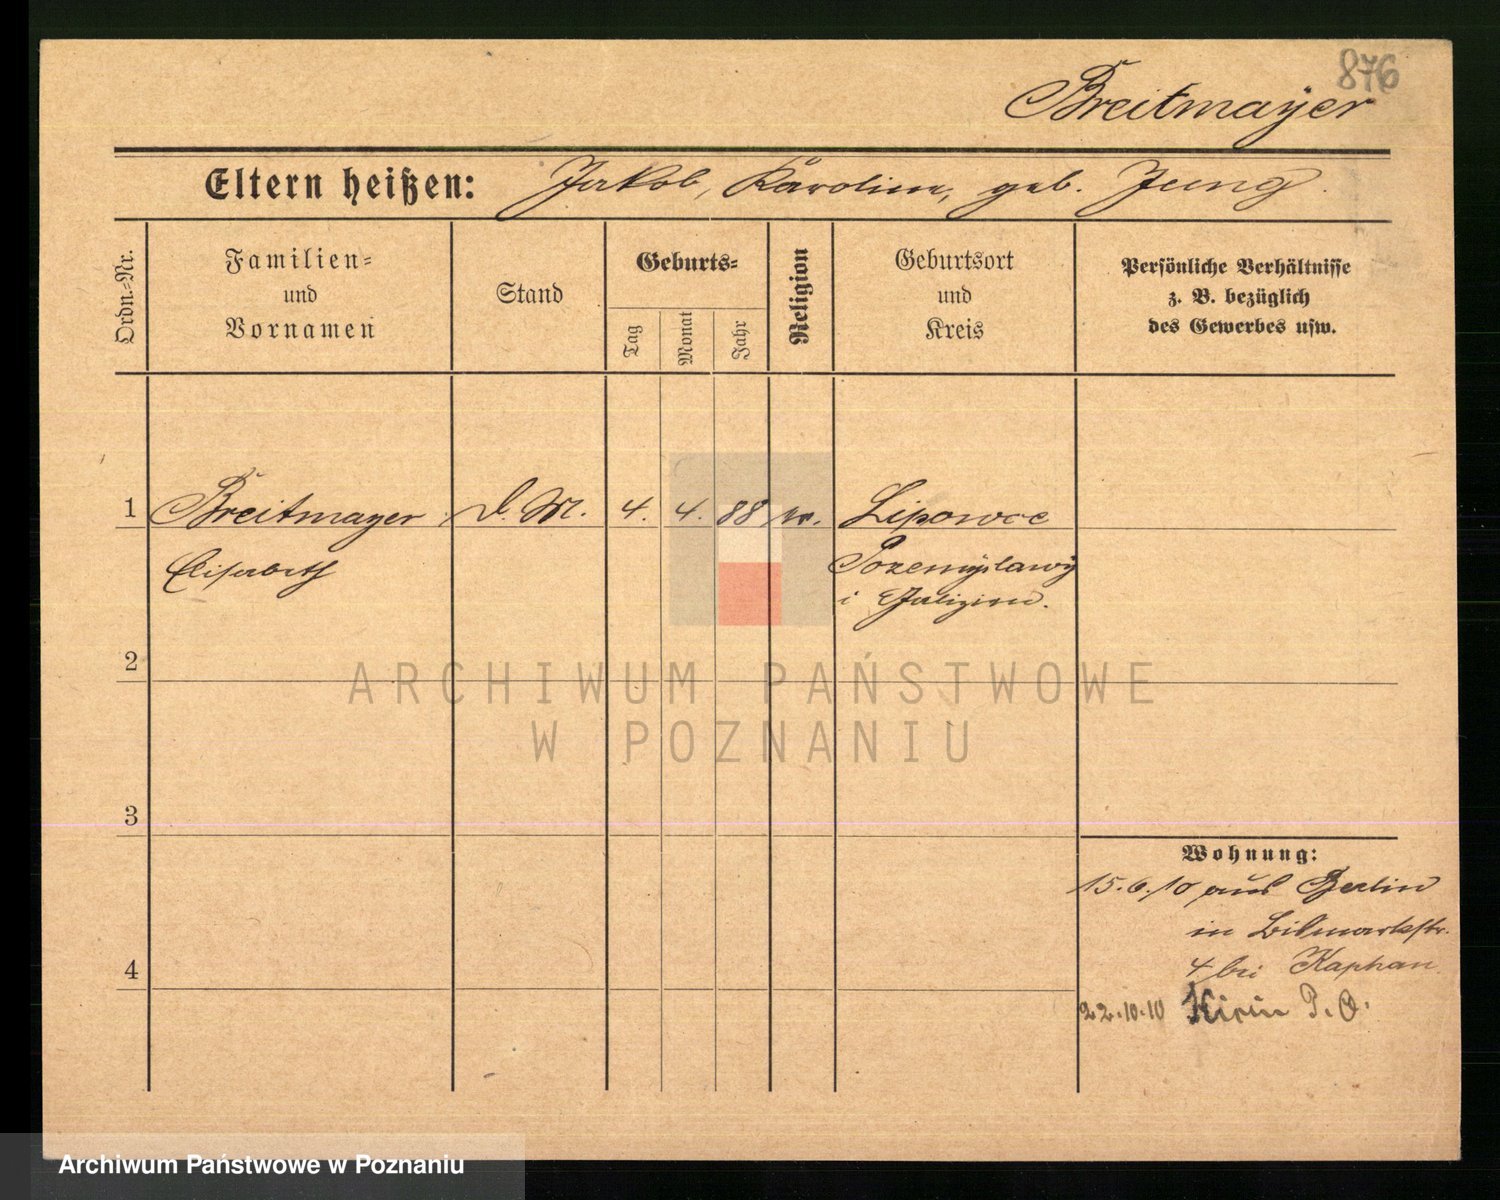 876
Breitmayer
Eltern heißen: Jakob, Karoline, geb. Jung.
Ordn.-Nr.
Familien- und Vornamen
Stand
Geburts-
Tag
Monat
Jahr
Religion
Geburtsort und Kreis
Persönliche Verhältnisse z. B. bezüglich des Gewerbes usw.
1 Breitmayer D. M. 4. 4. 88 ev. Lipowce
Elisabeth Pozemyslawy
i Galizien.
2
ARCHIWUM PAŃSTWOWE
W POZNANIU
3
Wohnung:
15.6.10 aus Berlin
in Bismarckstr.
4 4 bei Kaphan
22.10.10 P. O.
Archiwum Państwowe w Poznaniu